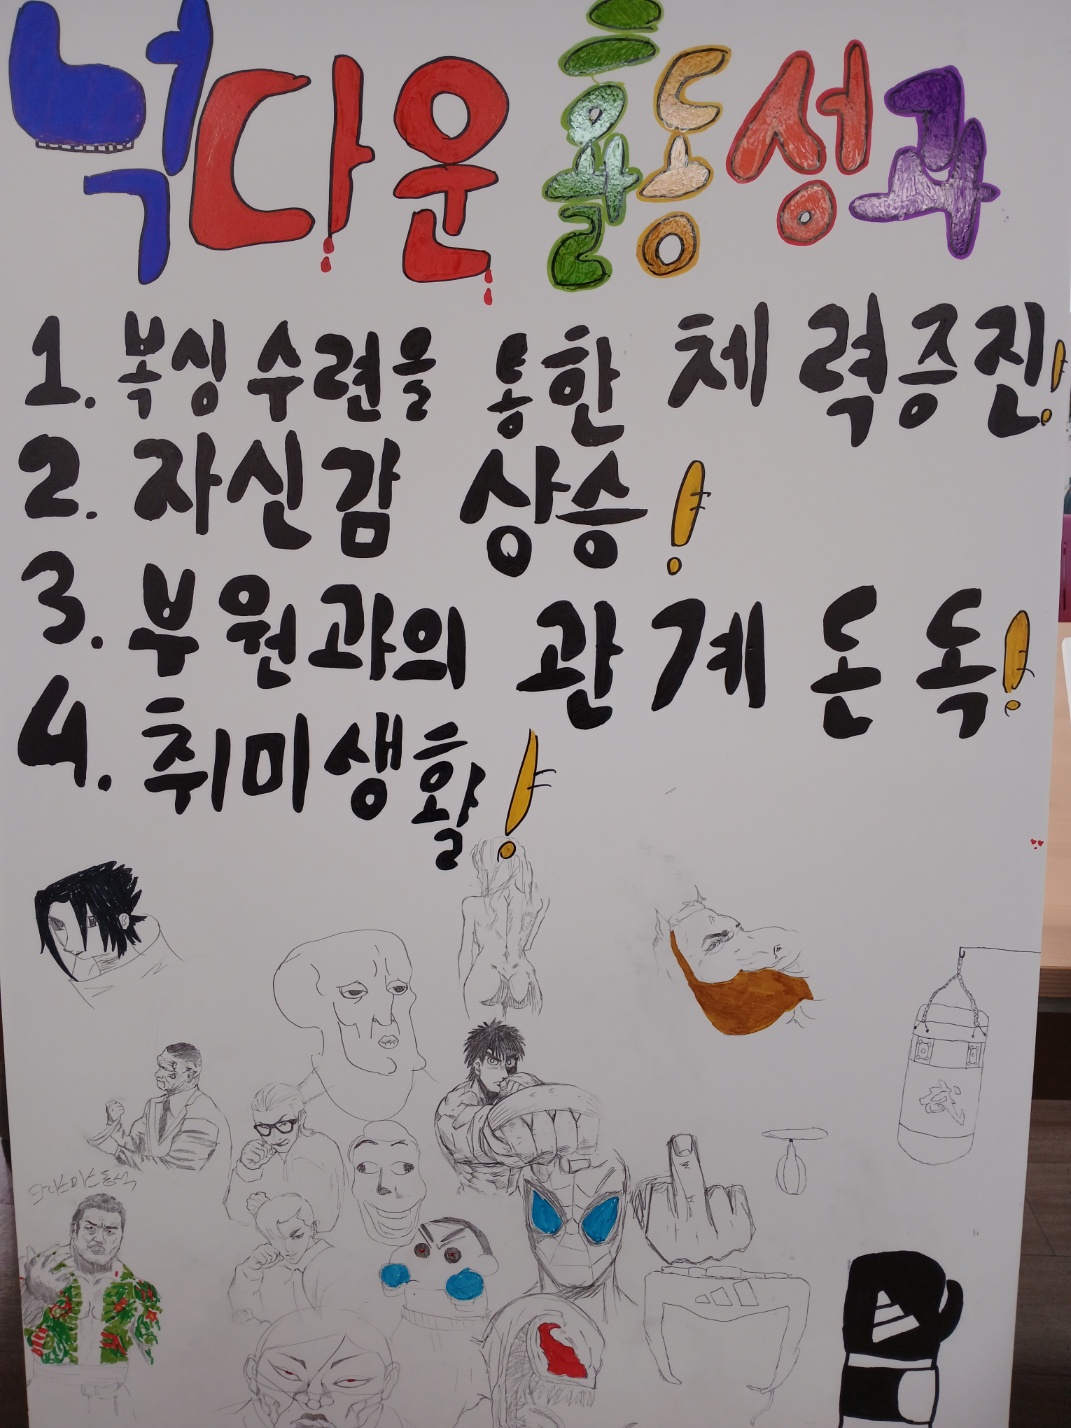 넉다운 활동성과
1. 복싱 수련을 통한 체력증진!
2. 자신감 상승!
3. 부원과의 관계 돈독!
4. 취미생활!